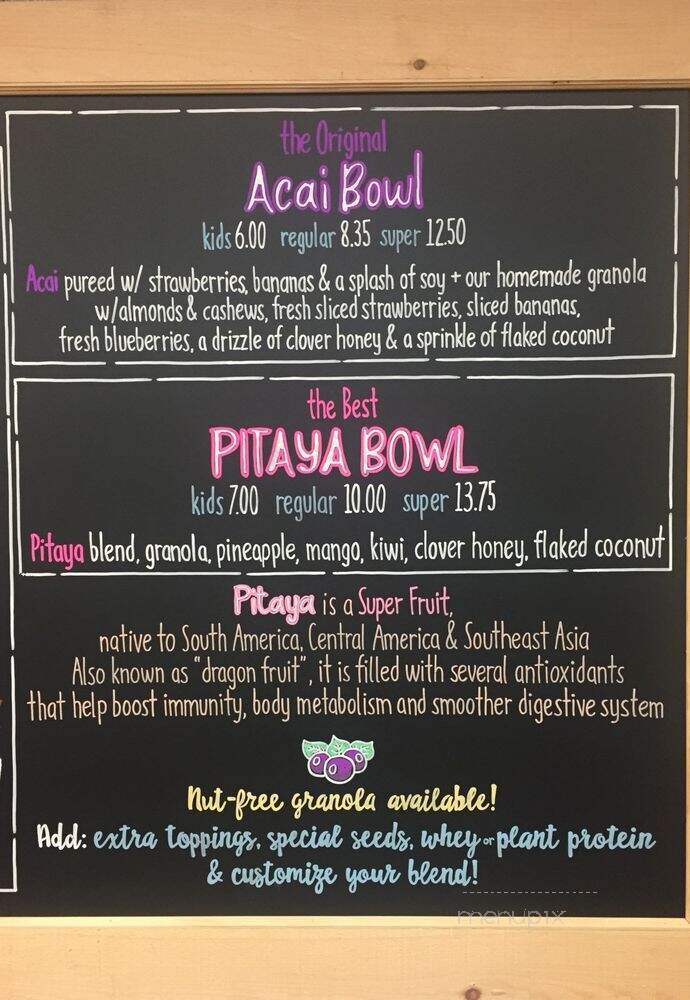 the Original
Acai Bowl
kids 6.00 regular 8.35 super 12.50
Acai pureed w/ strawberries, bananas & a splash of soy + our homemade granola
w/almonds & cashews, fresh sliced strawberries, sliced bananas,
fresh blueberries, a drizzle of clover honey & a sprinkle of flaked coconut
the Best
PITAYA BOWL
kids 7.00 regular 10.00 super 13.75
Pitaya blend, granola, pineapple, mango, kiwi, clover honey, flaked coconut
Pitaya is a Super Fruit,
native to South America, Central America & Southeast Asia
Also known as "dragon fruit", it is filled with several antioxidants
that help boost immunity, body metabolism and smoother digestive system
Nut-free granola available!
Add: extra toppings, special seeds, whey or plant protein
& customize your blend!
menupix